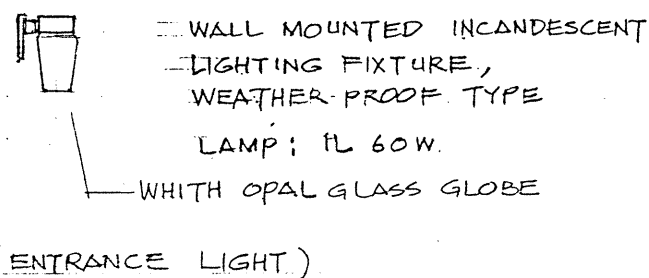 WALL MOUNTED INCANDESCENT
LIGHTING FIXTURE,
WEATHER-PROOF TYPE
LAMP; IL 60W.
WHITH OPAL GLASS GLOBE
ENTRANCE LIGHT)